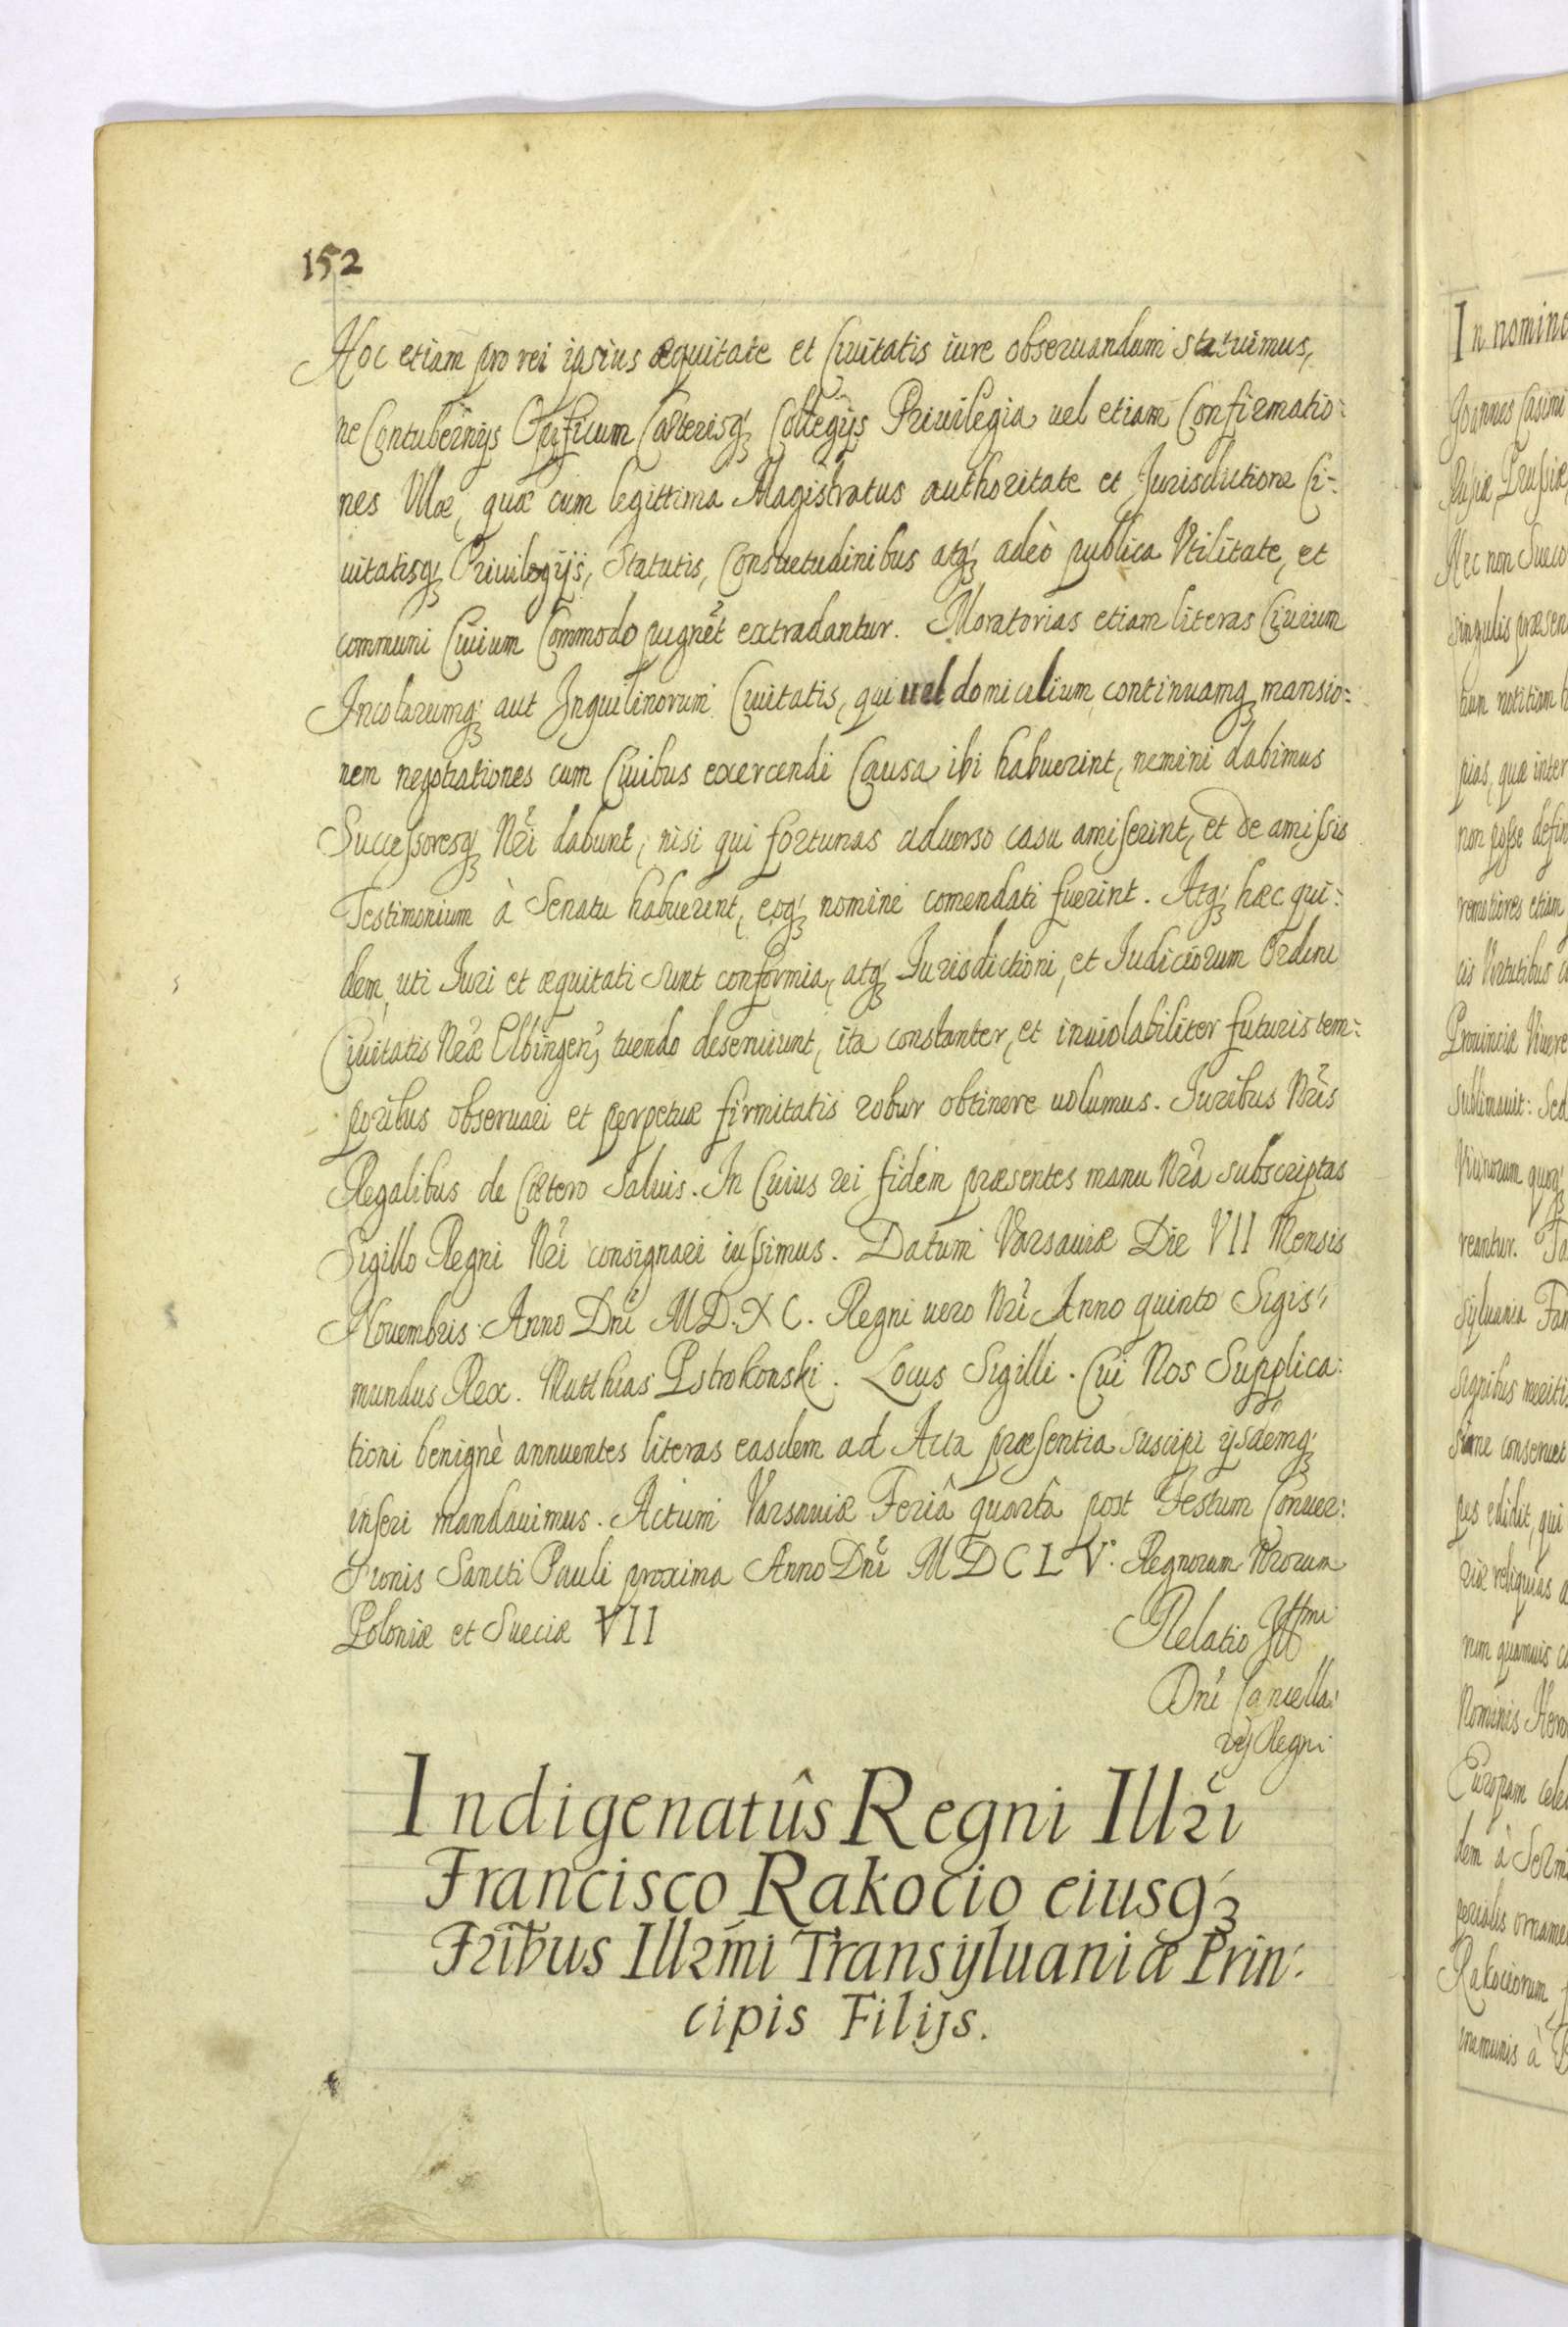 152
Hoc etiam pro rei ipsius æquitate et Ciuitatis iure obseruandum statuimus,
ne Contubernijs Opificum Cæterisq́ꝫ Collegijs Priuilegia uel etiam Confirmatio:
nes Ullæ, quæ cum legittima Magistratus authoritate et Jurisdictione Ci:
uitatisq́ꝫ Priuilegijs, Statutis, Consuetudinibus atq́ꝫ adeò publica Vtilitate, et
communi Ciuium Commodo pugnēt extradantur. Moratorias etiam literas Ciuium
Incolarumq́ꝫ aut Inquilinorum Ciuitatis, qui uel domicilium continuamqꝫ mansio:
nem negotiationes cum Ciuibus exercendi Causa ibi habuerint, nemini dabimus
Successoresq́ꝫ Nr̃i dabunt, nisi qui fortunas aduerso casu amiserint, et de amissis
Testimonium à Senatu habuerint, eoq́ꝫ nomine comendati fuerint. Atq́ꝫ hæc qui:
dem, uti Juri et æquitati sunt conformia, atq́ꝫ Jurisdictioni, et Judiciorum Ordini
Ciuitatis Nr̃æ Elbingeñ, tuendo deseruiunt, ita constanter, et inuiolabiliter futuris tem:
poribus obseruari et perpetuæ firmitatis robur obtinere uolumus. Juribus Nr̃is
Regalibus de Cætero Saluis. In Cuius rei fidem præsentes manu Nr̃a subscriptas
Sigillo Regni Nr̃i consignari iussimus. Datum Varsauiæ Die VII Mensis
Nouembris Anno Dn̄i MD.XC. Regni uero Nr̃i Anno quinto Sigis:
mundus Rex. Matthias Pstrokonski. Locus Sigilli. Cui Nos Supplica:
tioni benignè annuentes literas easdem ad Acta præsentia suscipi ijsdemq́ꝫ
inseri mandauimus. Actum Varsauiæ Feriâ quartâ post Festum Conuer:
sionis Sancti Pauli proxima Anno Dn̄i MDCLV. Regnorum Nrorum
Poloniæ et Sueciæ VII
Relatio Illmi
Dn̄i Cancella:
rij Regni
Indigenatûs Regni Illr̃i
Francisco Rakocio eiusq́ꝫ
Fr̃ibus Illr̃mi Transyluaniæ Prin:
cipis Filijs.
In nomine
Joannes Casimi
Rusiæ, Prussiæ
Nec non Sueco
singulis præsen
tium notitiam h
pias, quæ inter
non posse defin
remotiores etiam
Prouinciæ
Sublimauit: Sed
Virorum quoq́ꝫ
reantur.
syluania Fam
signibus meritis
conseruet
pes edidit, qui
riæ reliquias a
quamuis
Nominis Hero
Europam cele
dem à
perialis orname
Rakociorum
à